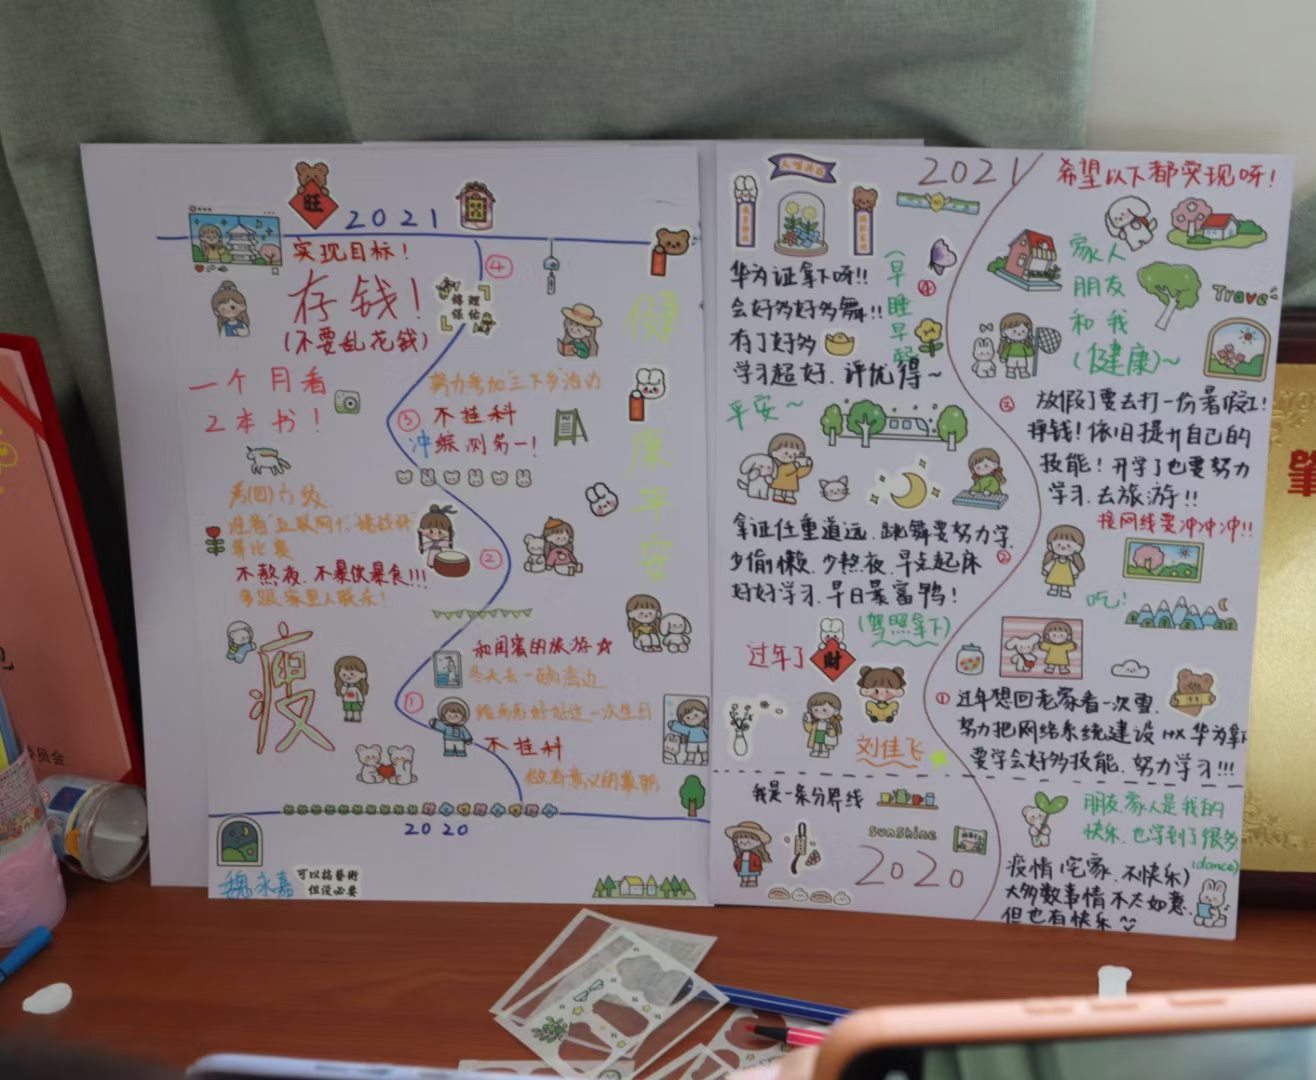 旺
2021
实现目标！
④
存钱！
锦鲤
保佑
(不要乱花钱)
一个月看
2本书！
努力参加"三下乡"活动
③
不挂科
冲 综测第一！
考(四)六级
准备"互联网+"、挑战杯
等比赛
不熬夜、不暴饮暴食!!!
多跟家里人联系！
②
健
康
平
安
瘦
和闺蜜的旅游☆
冬天去一确海边
①
给 好好过一次生日
不挂科
做有意义的兼职
2020
魏永嘉
可以搞艺術
但没必要
2021
希望以下都实现呀！
华为证拿下呀!!
会好多好多舞!!
有了好多
学习超好、评优得~
(早
睡
早
④
平安~
家人
朋友
和我
(健康)~
Travel
③
放假了要去打一份暑假工！
挣钱！依旧提升自己的
技能！开学了也要努力
学习、去旅游!!
接网线要冲冲冲!!
拿证任重道远、跳舞要努力学、
少偷懒、少熬夜、早点起床
②
好好学习、早日暴富鸭！
(驾照拿下)
吃！
过年了
财
刘佳飞
①
过年想回老家看一次雪、
努力把网络系统建设 HX 华为拿下
要学会好多技能、努力学习!!!
我是一条分界线
sunshine
2020
朋友、家人是我的
快乐、也学到了很多
(dance)
疫情(宅家、不快乐)
大多数事情不太如意、
但也有快乐
肇
员会